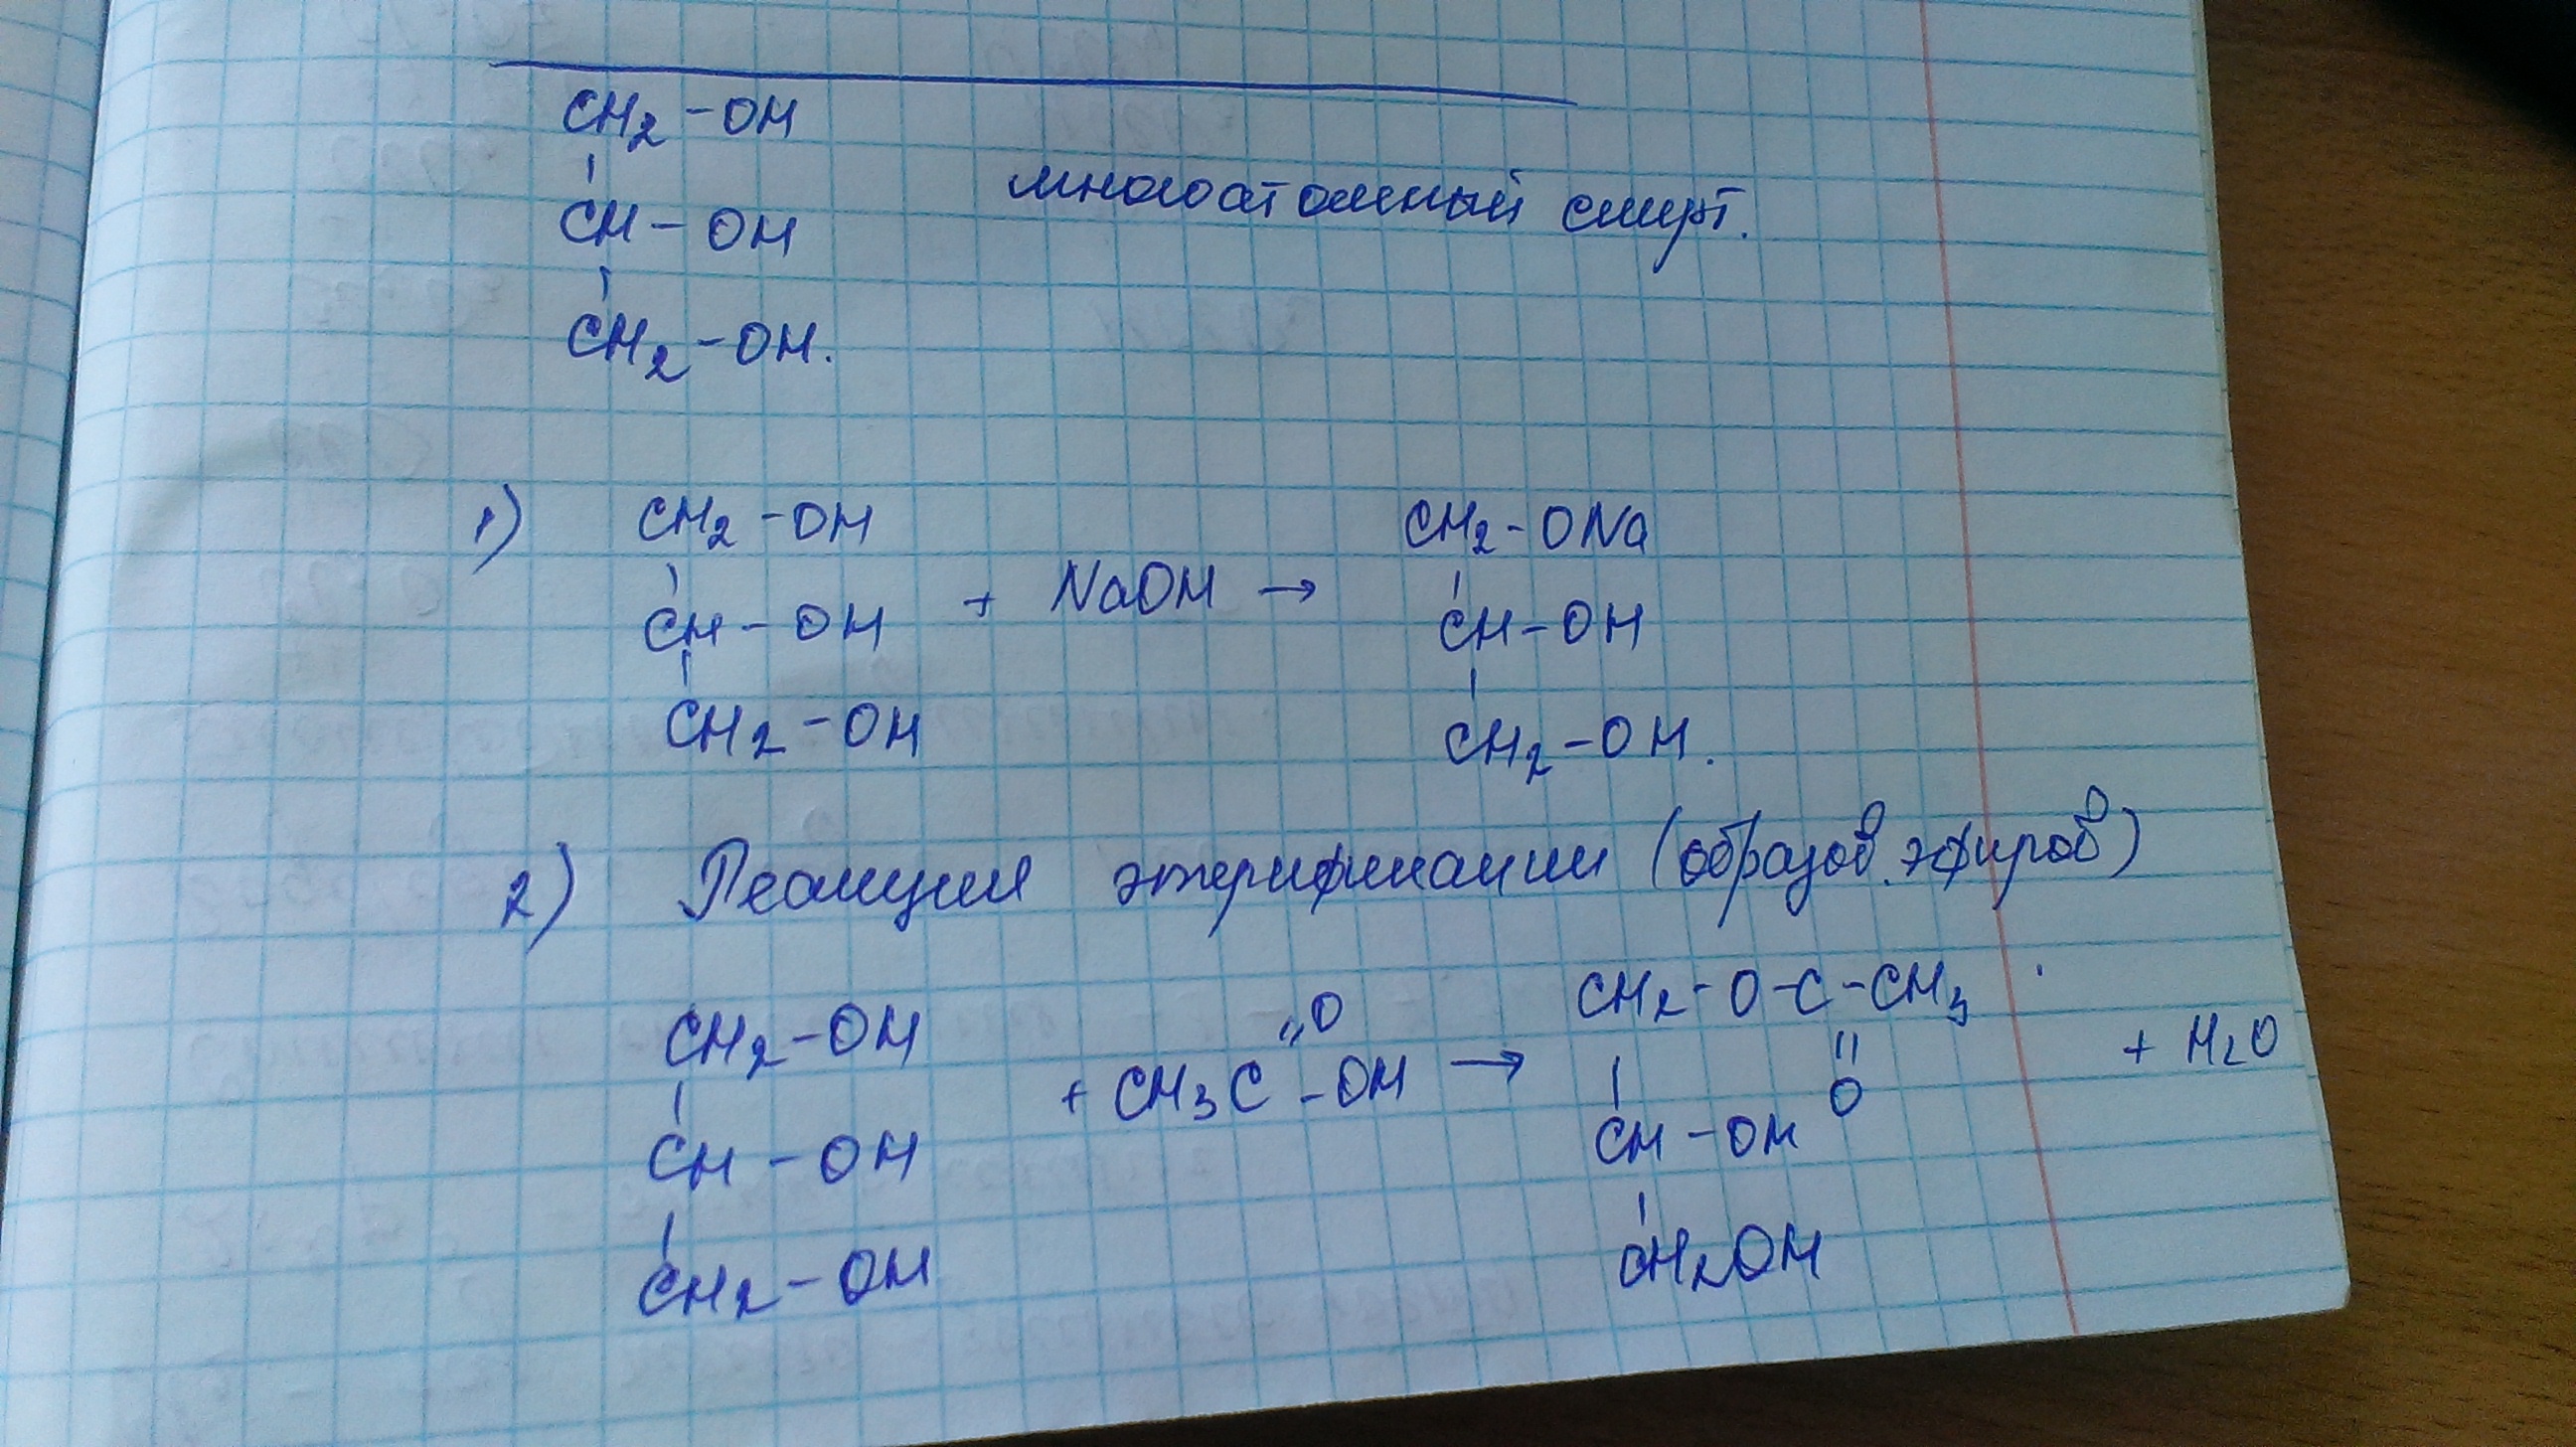 CH2 - OH
CH - OH
многоатомный спирт.
CH2 - OH.
1)
CH2 - OH
CH - OH + NaOH → CH2 - ONa
CH2 - OH
CH - OH
CH2 - OH.
2) Реакция этерификации (образов. эфиров)
CH2 - OH
CH - OH
CH2 - OH
+ CH3C - OH →
=O
CH2 - O - C - CH3
=
O
CH - OH
CH2OH
+ H2O